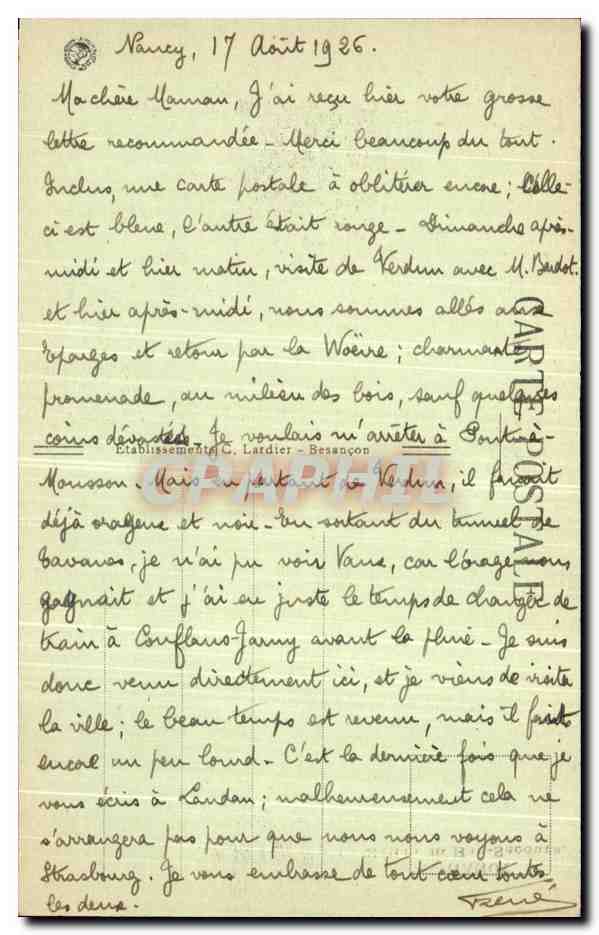 Nancy, 17 Août 1926.
Ma chère Maman, J'ai reçu hier votre grosse
lettre recommandée - Merci beaucoup du tout.
Inclus, une carte postale à oblitérer encore ; Celle-
ci est bleue, l'autre était rouge - Dimanche après-
midi et hier matin, visite de Verdun avec M. Bardot.
et hier après-midi, nous sommes allés aux
Eparges et retour par la Woëvre ; charmante
promenade, au milieu des bois, sauf quelques
coins dévastés - Je voulais m'arrêter à Pont-à-
Etablissements C. Lardier - Besançon
Mousson - Mais en partant de Verdun, il faisait
déjà orageux et noir - En sortant du tunnel de
Tavanes, je n'ai pu voir Vaux, car l'orage nous
gagnait et j'ai eu juste le temps de changer de
train à Conflans-Jarny avant la pluie - Je suis
donc venu directement ici, et je viens de visiter
la ville ; le beau temps est revenu, mais il fait
encore un peu lourd - C'est la dernière fois que je
vous écris à Landau ; malheureusement cela ne
s'arrangera pas pour que nous nous voyons à
Strasbourg. Je vous embrasse de tout cœur toutes
les deux.
René
CARTE POSTALE
CPAPHIL